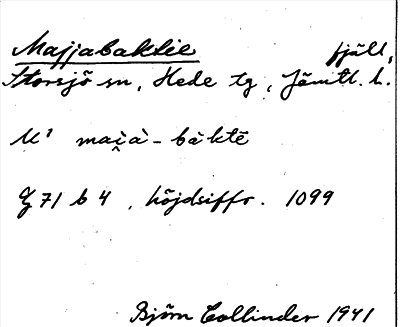 Majjabaktie fjäll,
Storsjö sn, Hede tg, Jämtl. l.
M¹ mai̯à - bàktē
G 71 b 4, höjdsiffr. 1099
Björn Collinder 1941